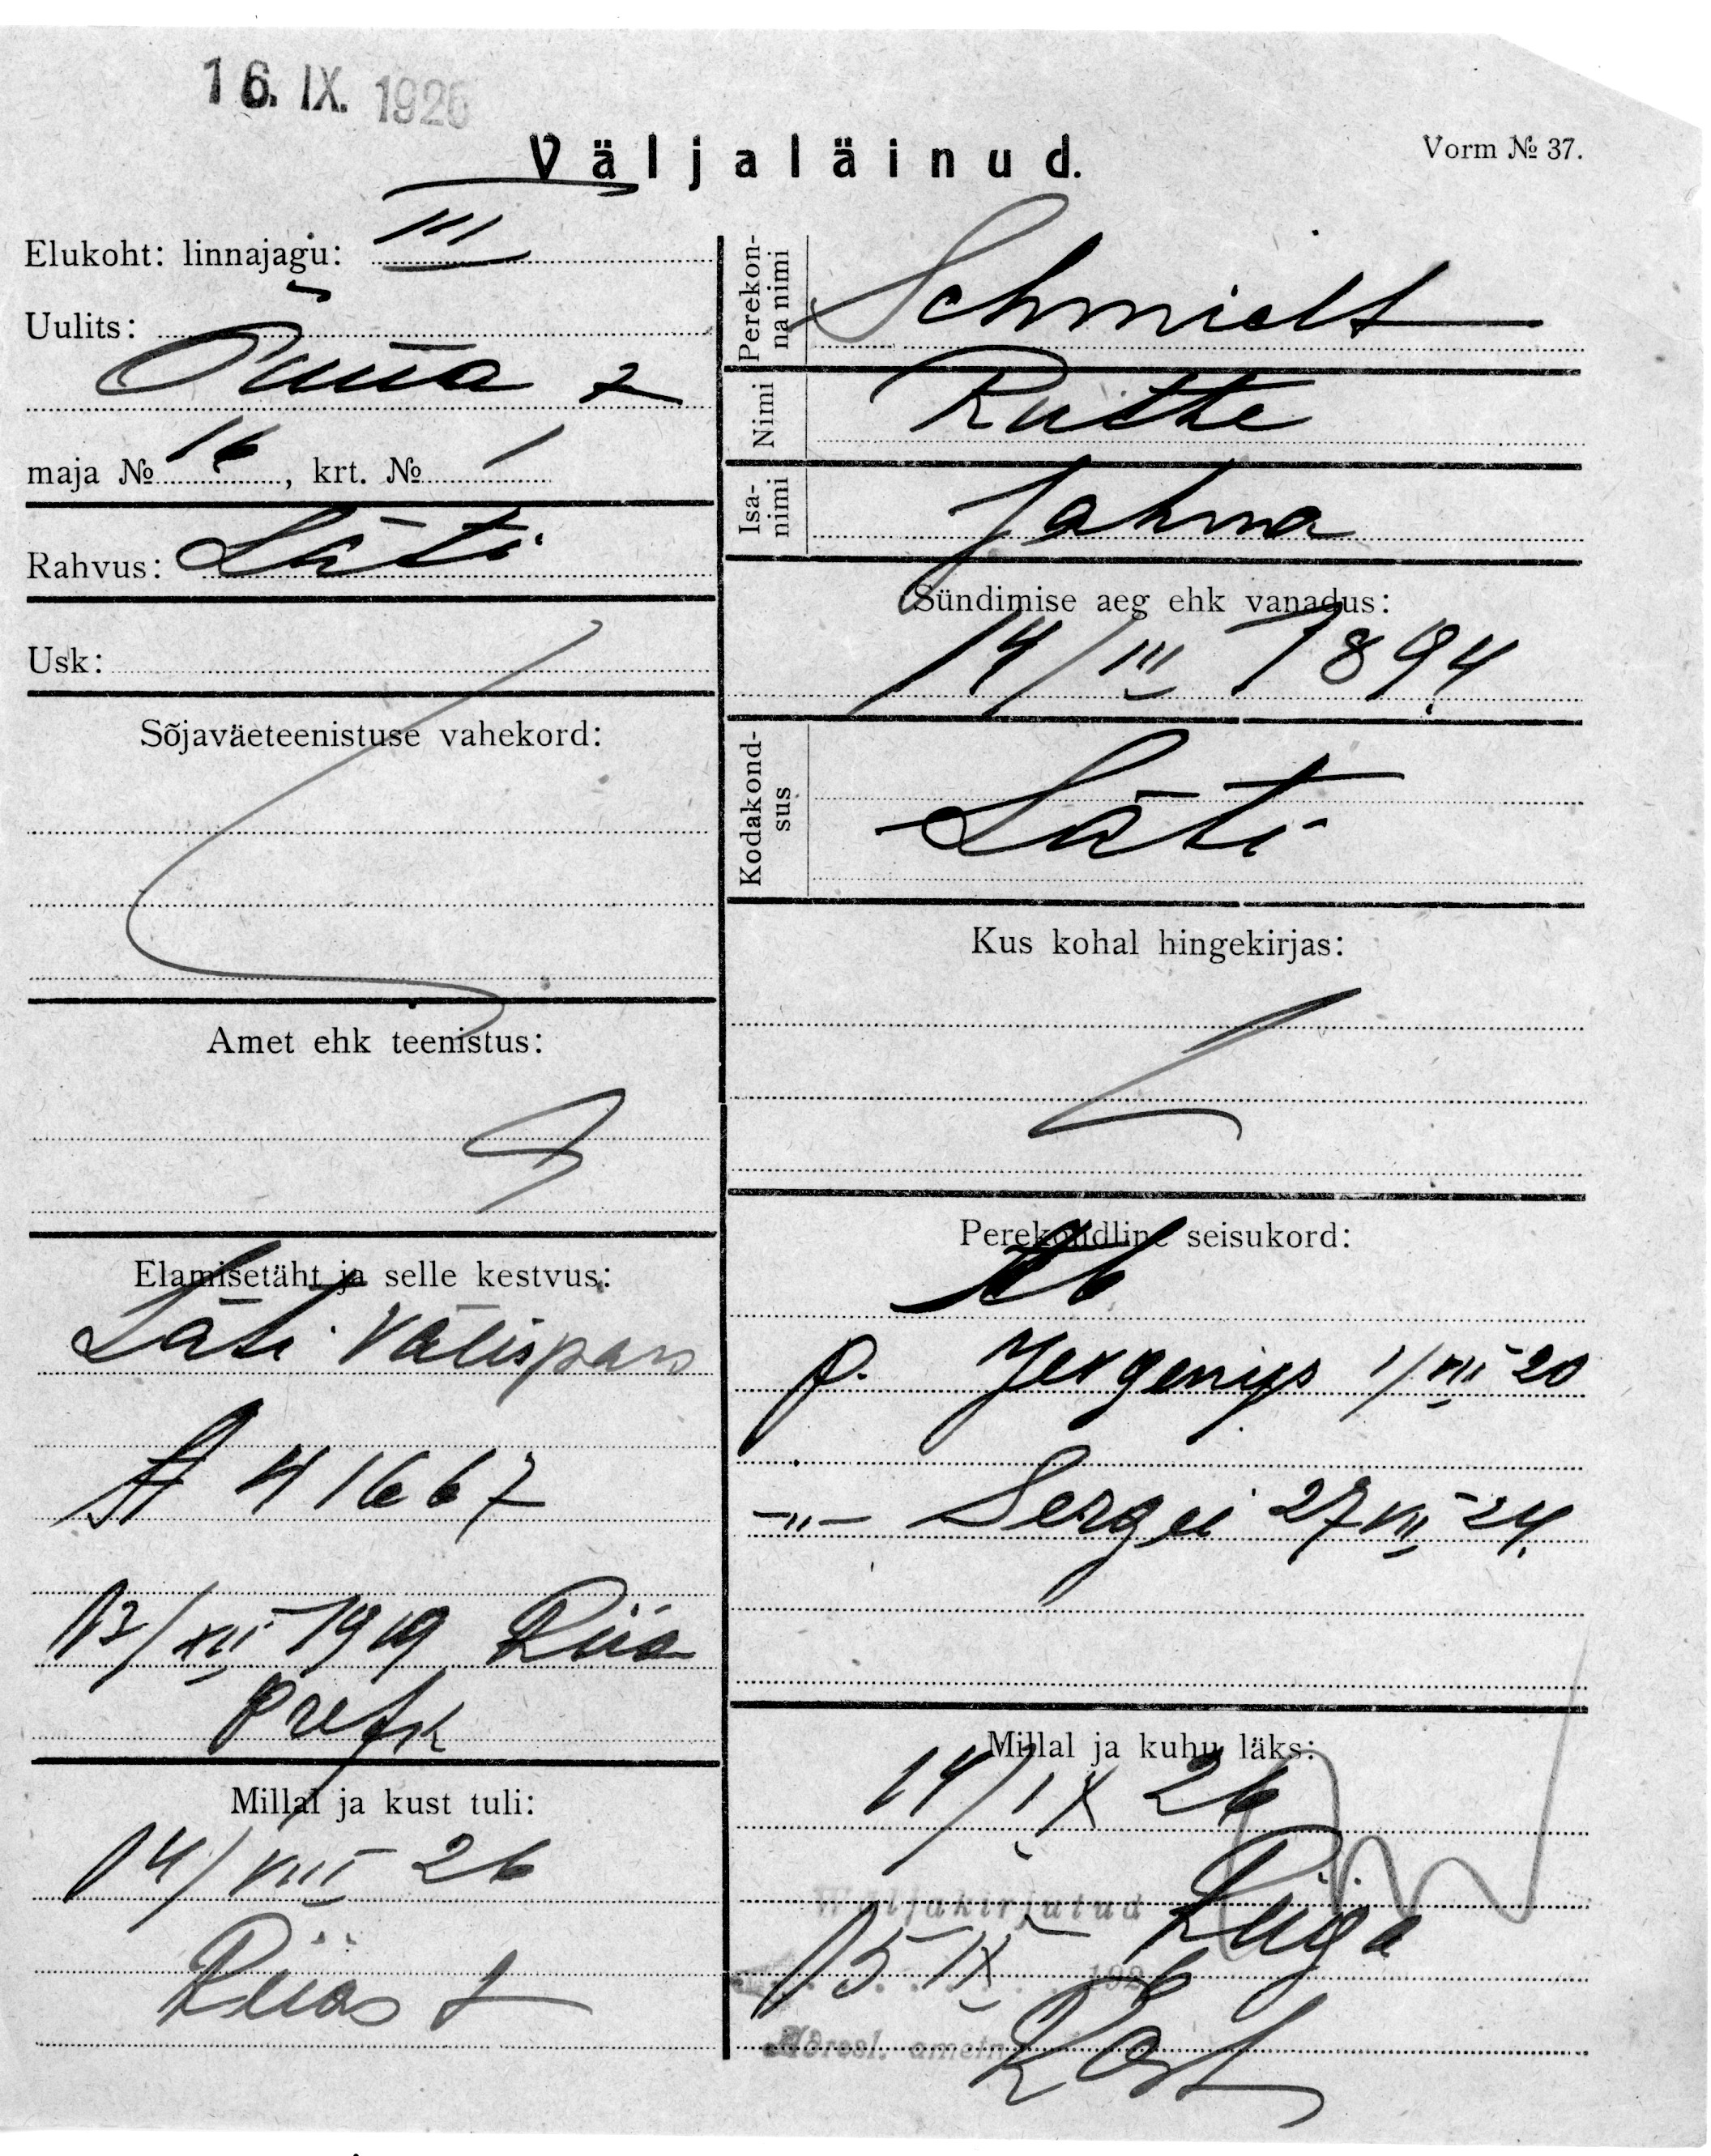 16. IX. 1926
Väljaläinud.
Vorm № 37.
Elukoht: linnajagu: III
Uulits:
maja № 16, krt. № 1
Rahvus: Läti
Usk:
Sõjaväeteenistuse vahekord:
Amet ehk teenistus:
Elamisetäht ja selle kestvus:
Läti Välispass
A 41667
13/XII 1919 Riia
Prefk
Millal ja kust tuli:
14/VIII 26
Riias t
Perekonna nimi
Schmidt
Nimi
Ruthe
Isanimi
Jahna
Sündimise aeg ehk vanadus:
14/III 1894
Kodakondsus
Läti
Kus kohal hingekirjas:
Perekondline seisukord:
p. Jevgenijs 1/VIII 20
-"- Sergei 27 VII 24.
Millal ja kuhu läks:
14/IX 26
Riiga
Wäljakirjutud
15 IX 1926
Adresl. ametn.